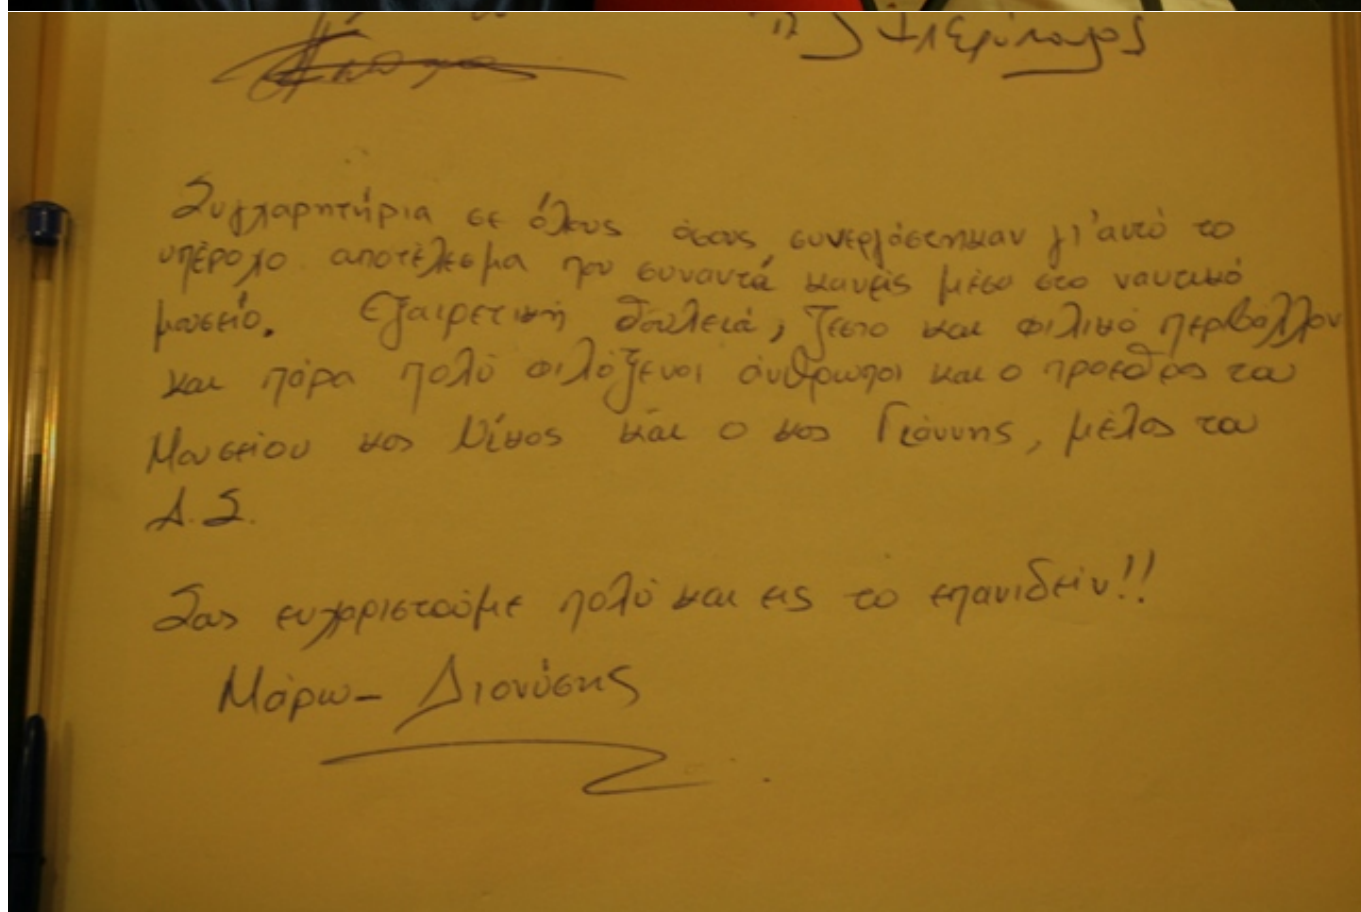 Συγχαρητήρια σε όλους όσους συνεργάστηκαν γι'αυτό το
υπέροχο αποτέλεσμα που συναντά κανείς μέσα στο ναυτικό
μουσείο. Εξαιρετική δουλειά, ζεστό και φιλικό περιβάλλον
και πάρα πολύ φιλόξενοι άνθρωποι και ο πρόεδρος του
Μουσείου κος Νίκος και ο κος Γιάννης, μέλος του
Δ.Σ.
Σας ευχαριστούμε πολύ και εις το επανιδείν!!
Μάρω - Διονύσης